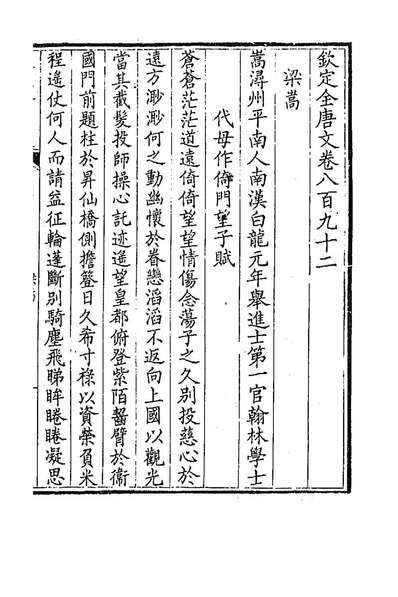 欽定全唐文卷八百九十二
梁嵩
嵩潯州平南人南漢白龍元年舉進士第一官翰林學士
代母作倚門望子賦
蒼蒼茫茫道遠倚倚望望情傷念蕩子之久別投慈心於
遠方渺渺何之動幽懷於眷戀滔滔不返向上國以觀光
當其截髮投師操心託迹遥望皇都俯登紫陌齧臂於衞
國門前題柱於昇仙橋側擔簦日久希寸祿以資榮負米
程遙仗何人而請益征輪蓬斷別騎塵飛睇眸睠睠凝思